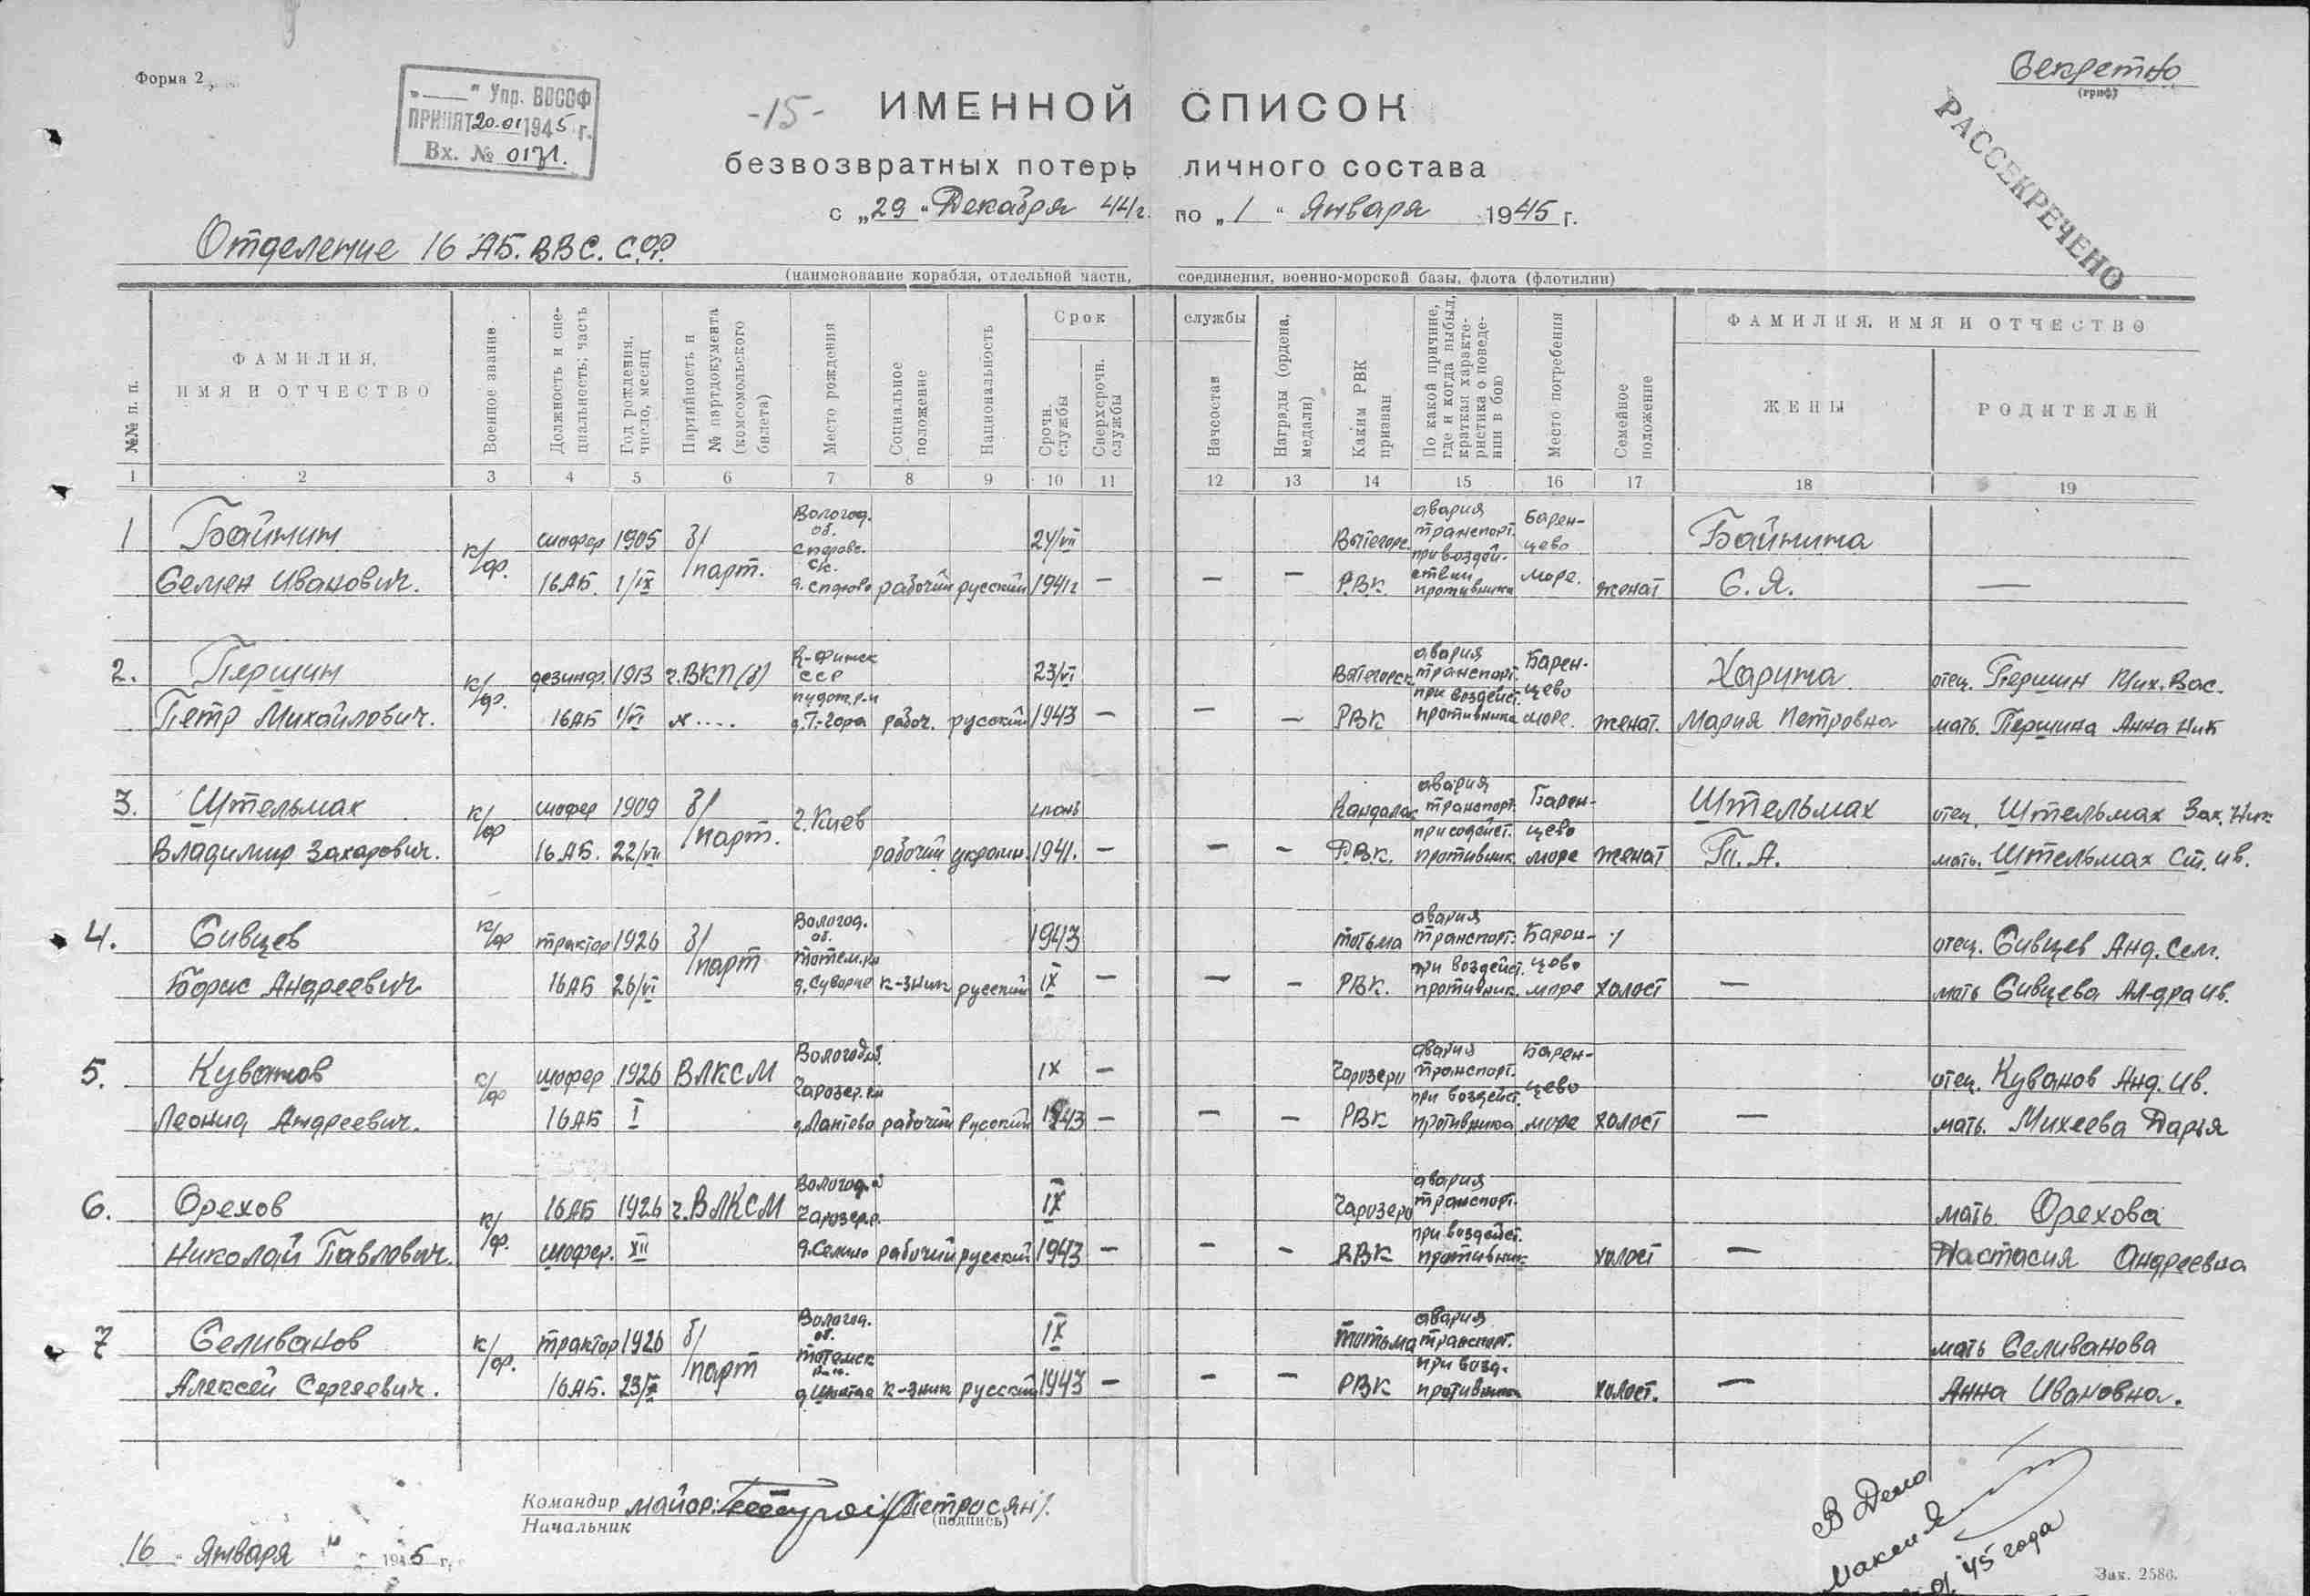 Форма 2
"—" Упр. ВОСОФ
ПРИНЯТ 20.01 1945 г.
Вх. № 0171.
-15-
Секретно
(гриф)
РАССЕКРЕЧЕНО
ИМЕННОЙ СПИСОК
безвозвратных потерь личного состава
с „29" Декабря 44г. по „1" Января 1945 г.
Отделение 16 АБ. ВВС. СФ.
(наименование корабля, отдельной части, соединения, военно-морской базы, флота (флотилии)
№№ п. п.
ФАМИЛИЯ, ИМЯ И ОТЧЕСТВО
Военное звание
Должность и специальность; часть
Год рождения, число, месяц
Партийность и № партдокумента (комсомольского билета)
Место рождения
Социальное положение
Национальность
Срок службы
Срочн. службы
Сверхсрочн. службы
Начсостав
Награды (ордена, медали)
Каким РВК призван
По какой причине, где и когда выбыл, краткая характеристика о поведении в бою
Место погребения
Семейное положение
ФАМИЛИЯ, ИМЯ И ОТЧЕСТВО
ЖЕНЫ
РОДИТЕЛЕЙ
1 2 3 4 5 6 7 8 9 10 11 12 13 14 15 16 17 18 19
1 Байнин Семен Иванович. к/ф. шофер 16АБ. 1905 1/IX б/парт. Вологод. об. с/с. рабочий русский 24/VII 1941г — — — Вытегорс. РВК. авария транспорт. при воздействии противника Баренцево море. женат Байнина С. Я. —
2. Першин Петр Михайлович. к/ф. дезинф. 16АБ 1913 1/VI ч. ВКП(б) №.... К-Финск ССР пудож. р-н д. Т-гора рабоч. русский 23/VI 1943 — — — Вытегорск РВК авария транспорт. при воздейст. противника Баренцево море. женат. Харина Мария Петровна отец. Першин Мих. Вас. мать. Першина Анна Ник
3. Штельмах Владимир Захарович. к/ф шофер 16АБ. 1909 22/VII б/парт. г. Киев рабочий украин. июнь 1941. — — — Кандалак РВК. авария транспорт. при содейст. противник Баренцево море женат Штельмах Т. А. отец. Штельмах Зах. Ник мать. Штельмах Ст. Ив.
4. Сивцев Борис Андреевич к/ф трактор 16АБ 1926 26/VI б/парт Вологод. об. Тотем. рн к-зник русский 1943 IX — — — Тотьма РВК. авария транспорт. при воздейст. противник. Баренцево море холост — отец. Сивцев Анд. Сем. мать Сивцева Ал-дра Ив.
5. Куванов Леонид Андреевич. к/ф шофер 16АБ 1926 I ВЛКСМ Вологод об. Чарозер. рн рабочий Русский IX 1943 — — — — Чарозеро РВК авария транспорт. при воздейст. противника Баренцево море холост — отец. Куванов Анд. Ив. мать. Михеева Дарья
6. Орехов Николай Павлович. к/ф. 16АБ шофер. 1926 XII ч. ВЛКСМ Вологод. Чарозер. р. рабочий русский IX 1943 — — — Чарозеро РВК авария транспорт. при воздейст. противник холост — мать Орехова Настасия Андреевна
7 Селиванов Алексей Сергеевич. к/ф. трактор 16АБ. 1926 б/парт Вологод. об. Тотемск к-зник русский IX 1943 — — — Тотьма РВК авария транспорт. при возд. противника холост. — мать Селиванова Анна Ивановна.
Командир
Начальник майор: /Петросян/.
(подпись)
16 Января 1945 г.
В Дело
45 года
Зак. 2586.